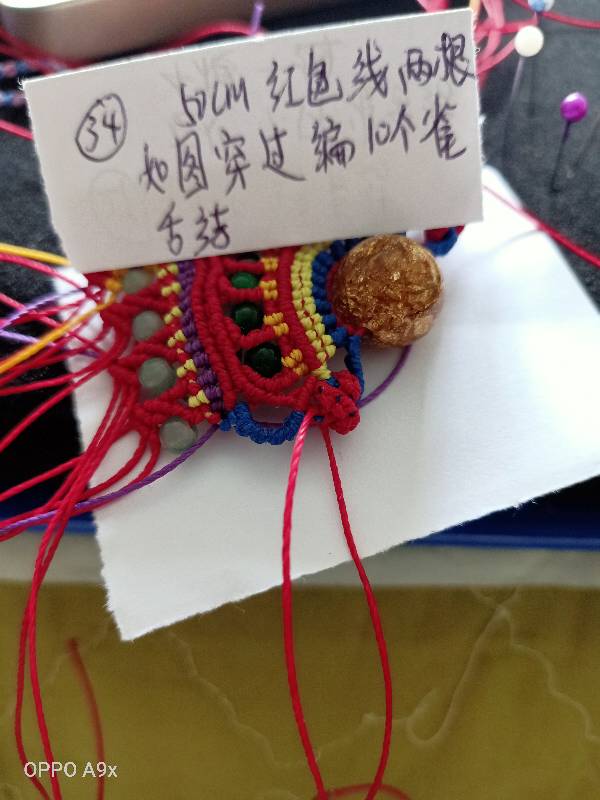 34 50CM 红色线两根
如图穿过编10个雀
舌结
OPPO A9x